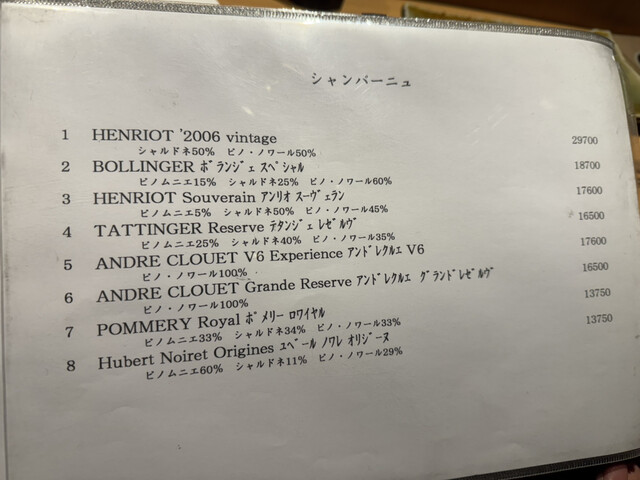 シャンパーニュ
1 HENRIOT '2006 vintage 29700
シャルドネ50% ピノ・ノワール50%
2 BOLLINGER ﾎﾞﾗﾝｼﾞｪ ｽﾍﾟｼｬﾙ 18700
ピノムニエ15% シャルドネ25% ピノ・ノワール60%
3 HENRIOT Souverain ｱﾝﾘｵ ｽｰｳﾞｪﾗﾝ 17600
ピノムニエ5% シャルドネ50% ピノ・ノワール45%
4 TATTINGER Reserve ﾃﾀﾝｼﾞｪ ﾚｾﾞﾙｳﾞ 16500
ピノムニエ25% シャルドネ40% ピノ・ノワール35%
5 ANDRE CLOUET V6 Experience ｱﾝﾄﾞﾚｸﾙｴ V6 17600
ピノ・ノワール100%
6 ANDRE CLOUET Grande Reserve ｱﾝﾄﾞﾚｸﾙｴ ｸﾞﾗﾝﾄﾞﾚｾﾞﾙｳﾞ 16500
ピノ・ノワール100%
7 POMMERY Royal ﾎﾟﾒﾘｰ ﾛﾜｲﾔﾙ 13750
ピノムニエ33% シャルドネ34% ピノ・ノワール33%
8 Hubert Noiret Origines ﾕﾍﾞｰﾙ ﾉﾜﾚ ｵﾘｼﾞｰﾇ 13750
ピノムニエ60% シャルドネ11% ピノ・ノワール29%